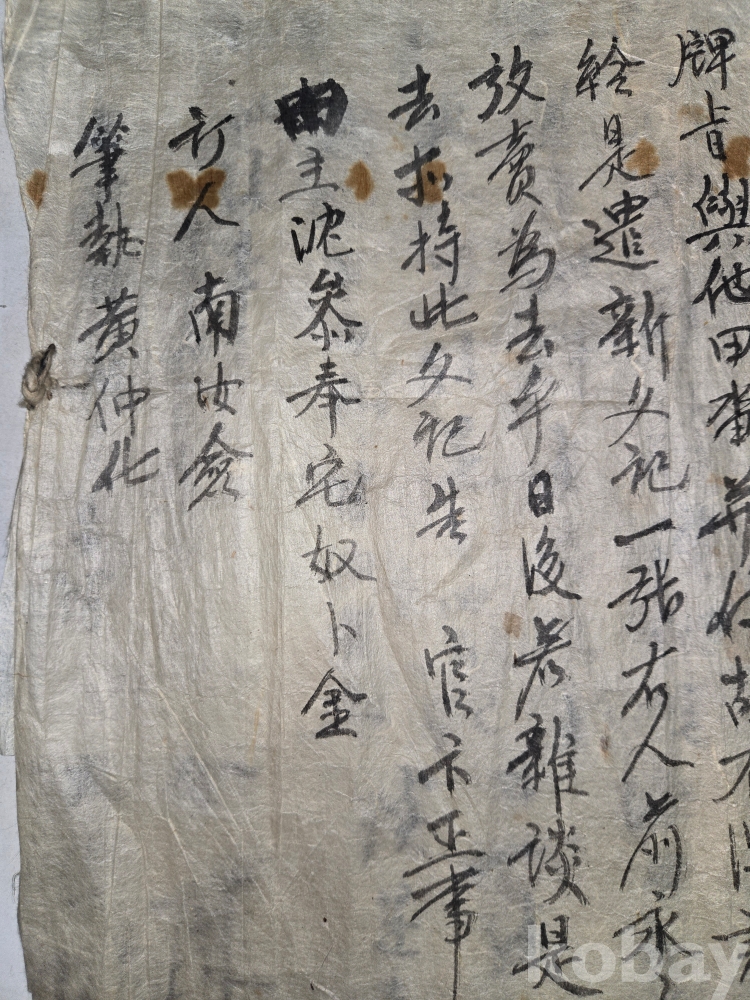 牌旨與他田畓幷以
是遣新文記一張右人前永
放賣爲去乎日後若雜談是
去等持此文記告 官卞正事
主沈參奉宅奴卜金
訂人 南汝
筆執 黃仲化
kobay